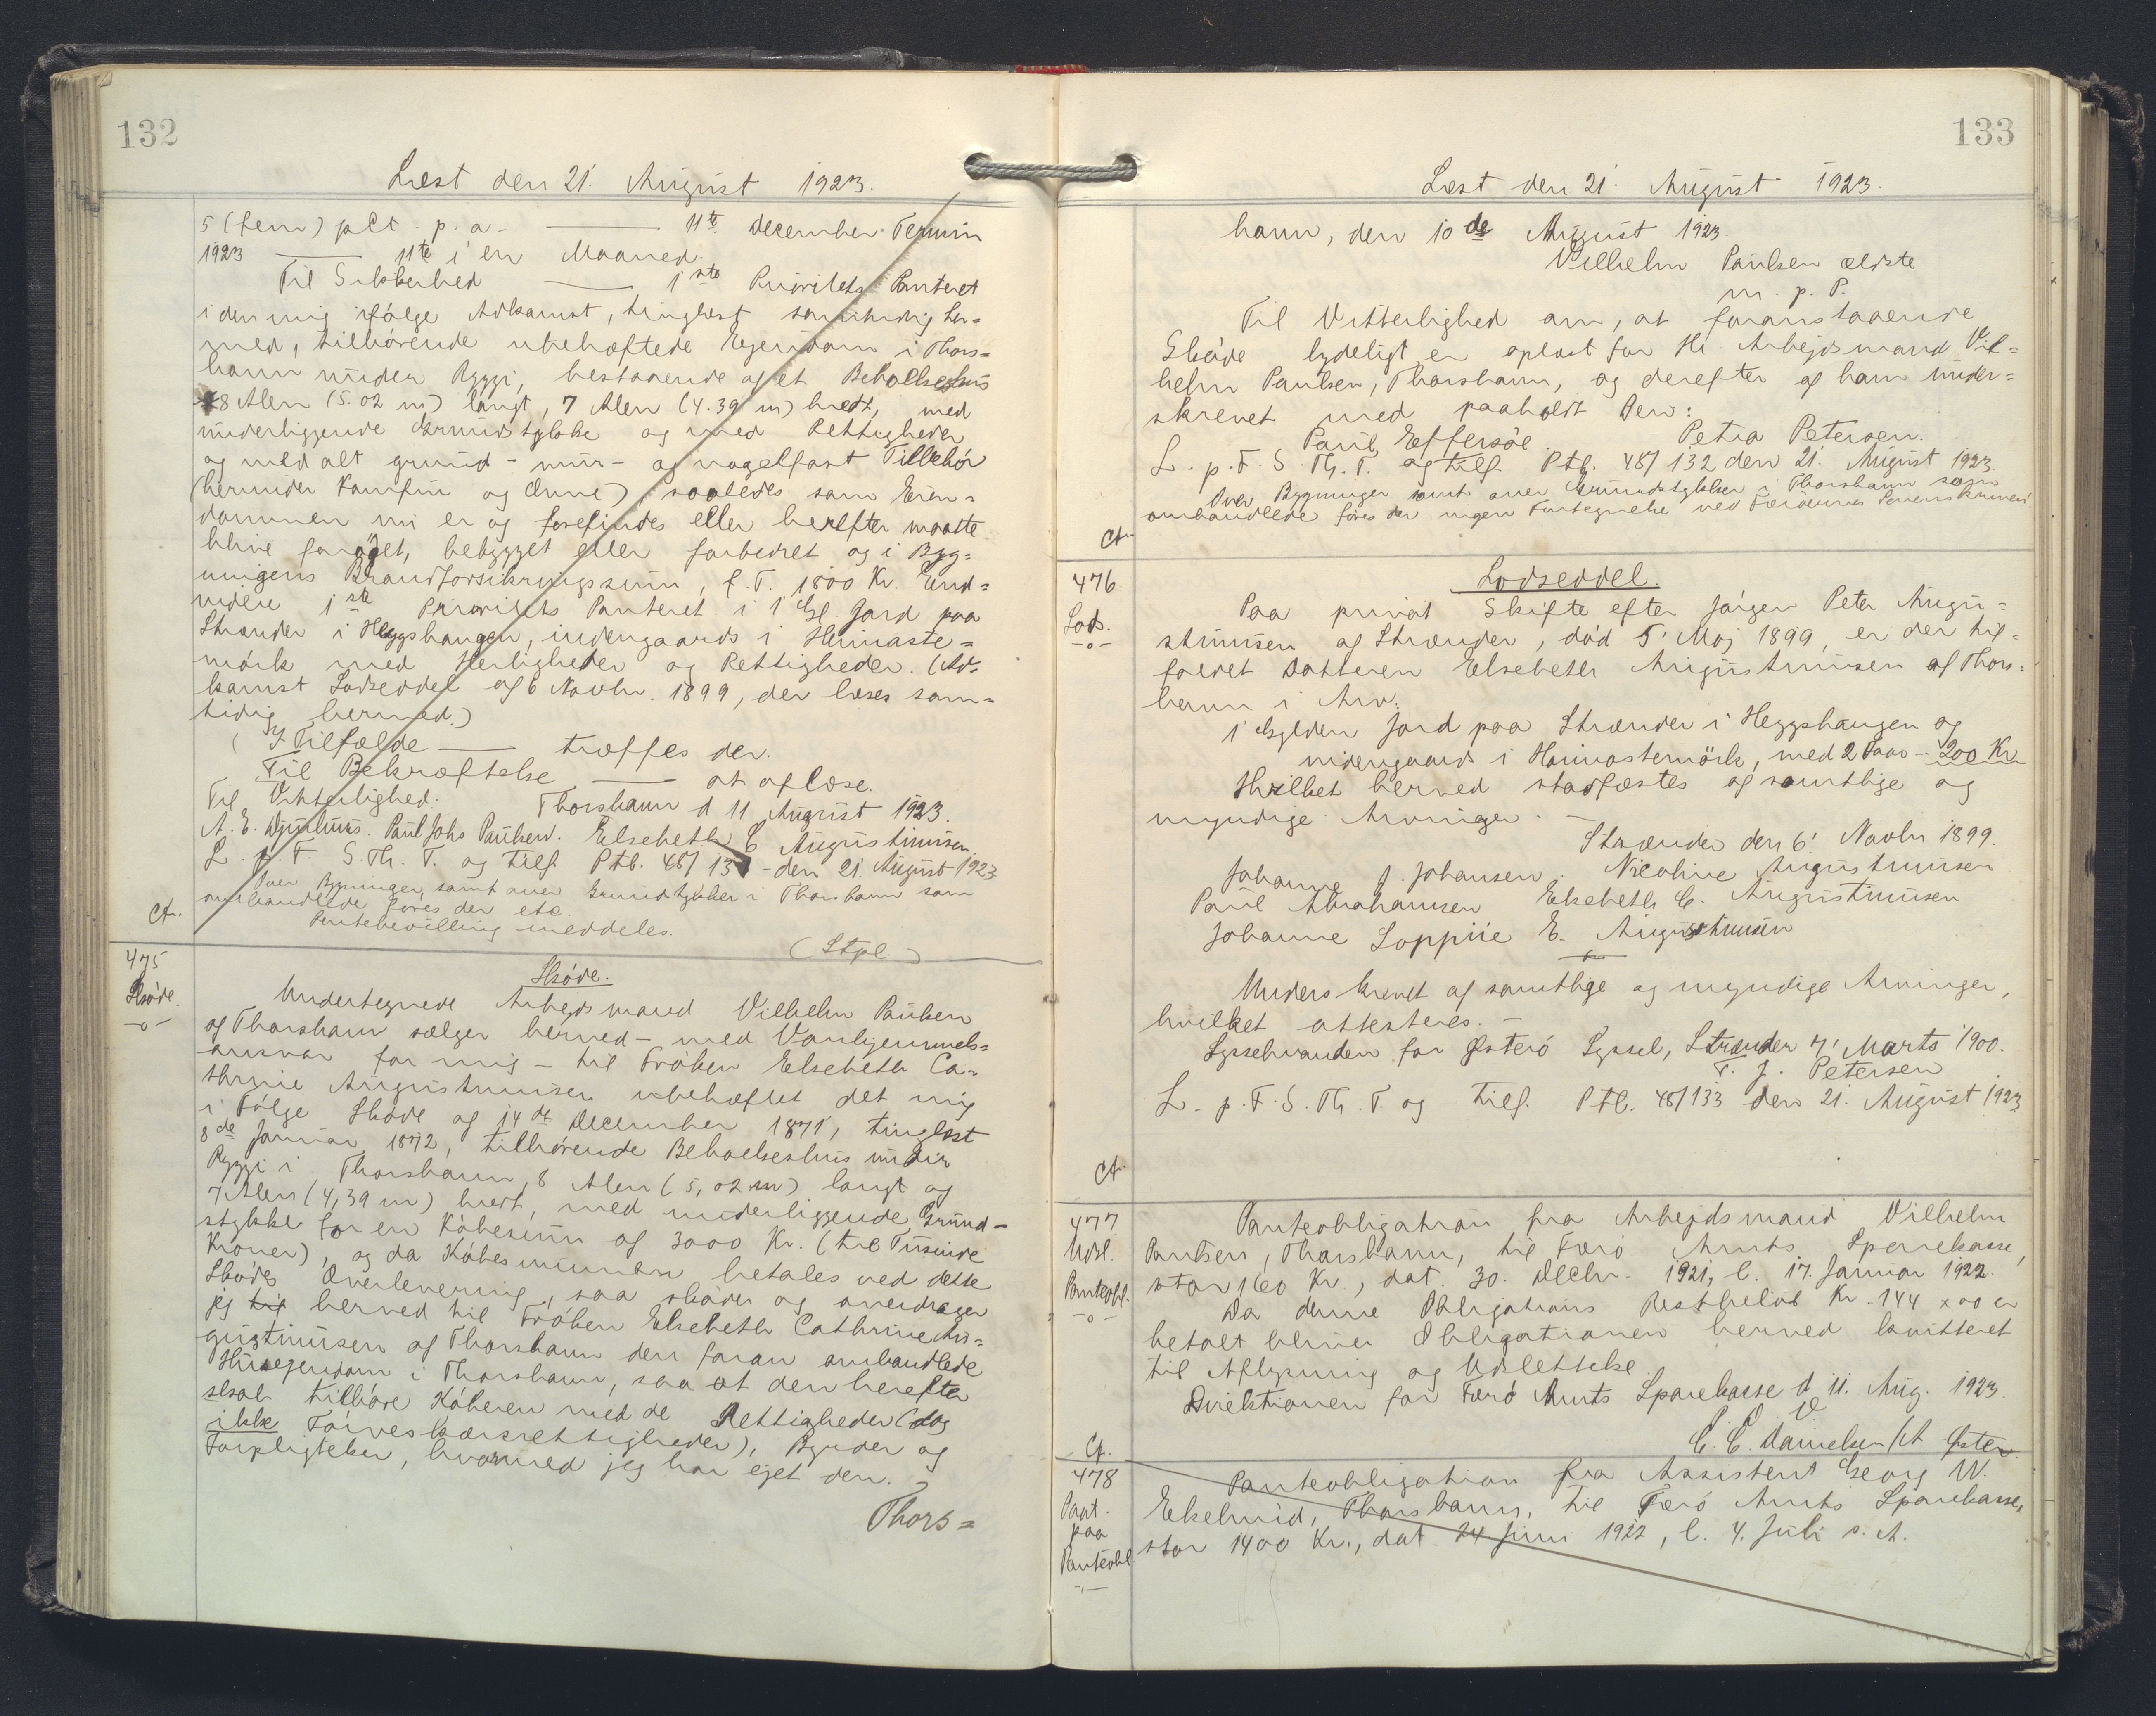 132
Læst den 21. August 1923.
5 (fem) pCt. p. a. — 11te December Termin
1923 — 11te i en Maaned.
Til Sikkerhed — 1ste Prioritets Panteret
i den mig ifølge Adkomst, tinglæst samtidig her=
med, tilhørende ubehæftede Ejendom i Thors=
havn under Ryggi, bestaaende af et Beboelseshus
8 Alen (5.02 m) langt, 7 Alen (4.39 m) bredt, med
underliggende Grundstykke og med Rettigheder
og med alt grund- mur- og nagelfast Tilbehør
(herunder Komfur og Ovne) saaledes som Eien=
dommen nu er og forefindes eller herefter maatte
blive forøget, bebygget eller forbedret og i Byg=
ningens Brandforsikringssum, f. T. 1800 Kr. End=
videre 1ste Prioritets Panteret i 1 Gl. Jord paa
Strænder i Heggshaugen, indengaards i Heimaste=
mørk med Herligheder og Rettigheder. (Ad=
komst Lodseddel af 6 Novbr. 1899, der læses sam=
tidig hermed.)
I Tilfælde — træffes der.
Til Bekræftelse — at aflæse.
Til Vitterlighed: Thorshavn d 11 August 1923.
A. E. Djurhuus. Paul Johs Paulsen. Elsebeth C Augustinussen
L. p. F. S. Th. T. og tilf. Ptb. 48/131 - den 21. August 1923
Over Bygninger, samt over Grundstykker i Thorshavn som
omhandlede føres der etc.
Ct. Pantebevilling meddeles.
(Stpl.)
475
Skøde.
-o-
Skøde.
Undertegnede Arbejdsmand Vilhelm Paulsen
af Thorshavn sælger herved - med Vanhjemmels=
ansvar for mig - til Frøken Elsebeth Ca=
thrine Augustinussen ubehæftet det mig
i Følge Skøde af 14de December 1871, tinglæst
8de Januar 1872, tilhørende Beboelseshus undir
Ryggi i Thorshavn, 8 Alen (5,02 m) langt og
7 Alen (4,39 m) bredt, med underliggende Grund-
stykke for en Købesum af 3000 Kr. (tre Tusinde
Kroner), og da Købesummen betales ved dette
Skødes Overlevering, saa skøder og overdrager
jeg til herved til Frøken Elsebeth Cathrine Au=
gustinusen af Thorshavn den foran omhandlede
Husejendom i Thorshavn, saa at den herefter
skal tilhøre Køberen med de Rettigheder (dog
ikke Tørveskærsrettigheder), Byrder og
Forpligtelser, hvormed jeg har ejet den. -
Thors=
133
Læst den 21. August 1923.
havn, den 10de August 1923.
Vilhelm Paulsen ældste
m. p. P.
Til Vitterlighed om, at foranstaaende
Skøde lydeligt er oplæst for Hr. Arbejdsmand Vil=
helm Paulsen, Thorshavn, og derefter af ham under=
skrevet med paaholdt Pen:
Paul Effersøe. Petra Petersen.
L. p. F. S. Th. T. og tilf. Ptb. 48/132 den 21. August 1923.
Over Bygninger samt over Grundstykker i Thorshavn som
omhandlede føres der ingen Fortegnelse ved Færøernes Sorenskriveri
Ct.
476
Lods.
-o-
Lodseddel.
Paa privat Skifte efter Jørgen Peter Augu=
stinusen af Strænder, død 5' Maj 1899, er der til=
faldet Datteren Elsebeth Augustinusen af Thors=
havn i Arv:
1 Gylden Jord paa Strænder i Heggshaugen og
indengaards i Heimastemørk, med 2 Faar - 200 Kr
Hvilket herved stadfæstes af samtlige og
myndige Arvinger. -
Strænder den 6' Novbr 1899.
Johanne J. Johansen. Nicoline Augustinusen
Paul Abrahamsen Elsebeth C. Augustinusen
Johanne Soppiie E. Augustinusen
Underskrevet af samtlige og myndige Arvinger,
hvilket attesteres. -
Sysselmanden for Østerø Syssel, Strænder 7' Marts 1900.
T. J. Petersen
L. p. F. S. Th. T. og tilf. Ptb. 48/133 den 21. August 1923
Ct.
477
Udsl.
Panteobl.
-o-
Panteobligation fra Arbejdsmand Vilhelm
Paulsen, Thorshavn, til Færø Amts Sparekasse,
stor 160 Kr., dat. 30. Decbr. 1921, l. 17. Januar 1922.
Da denne Obligations Restbeløb Kr. 144 x 00 er
betalt bliver Obligationen herved kvitteret
til Aflysning og Udslettelse.
Direktionen for Færø Amts Sparekasse d 11. Aug. 1923.
C. C. Danielsen
Ct.
478
Paat.
paa
Panteobl.
Panteobligation fra Assistent Georg W.
Thorshavn, til Færø Amts Sparekasse,
stor 1400 Kr., dat. 24 Juni 1922, l. 4. Juli s. A.